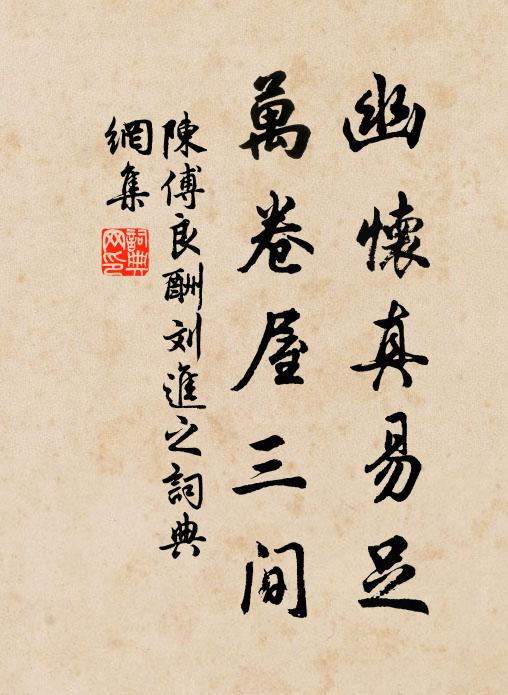 幽懷真易足
萬卷屋三间
陳傅良酬刘進之詞典
網集
詞典網印